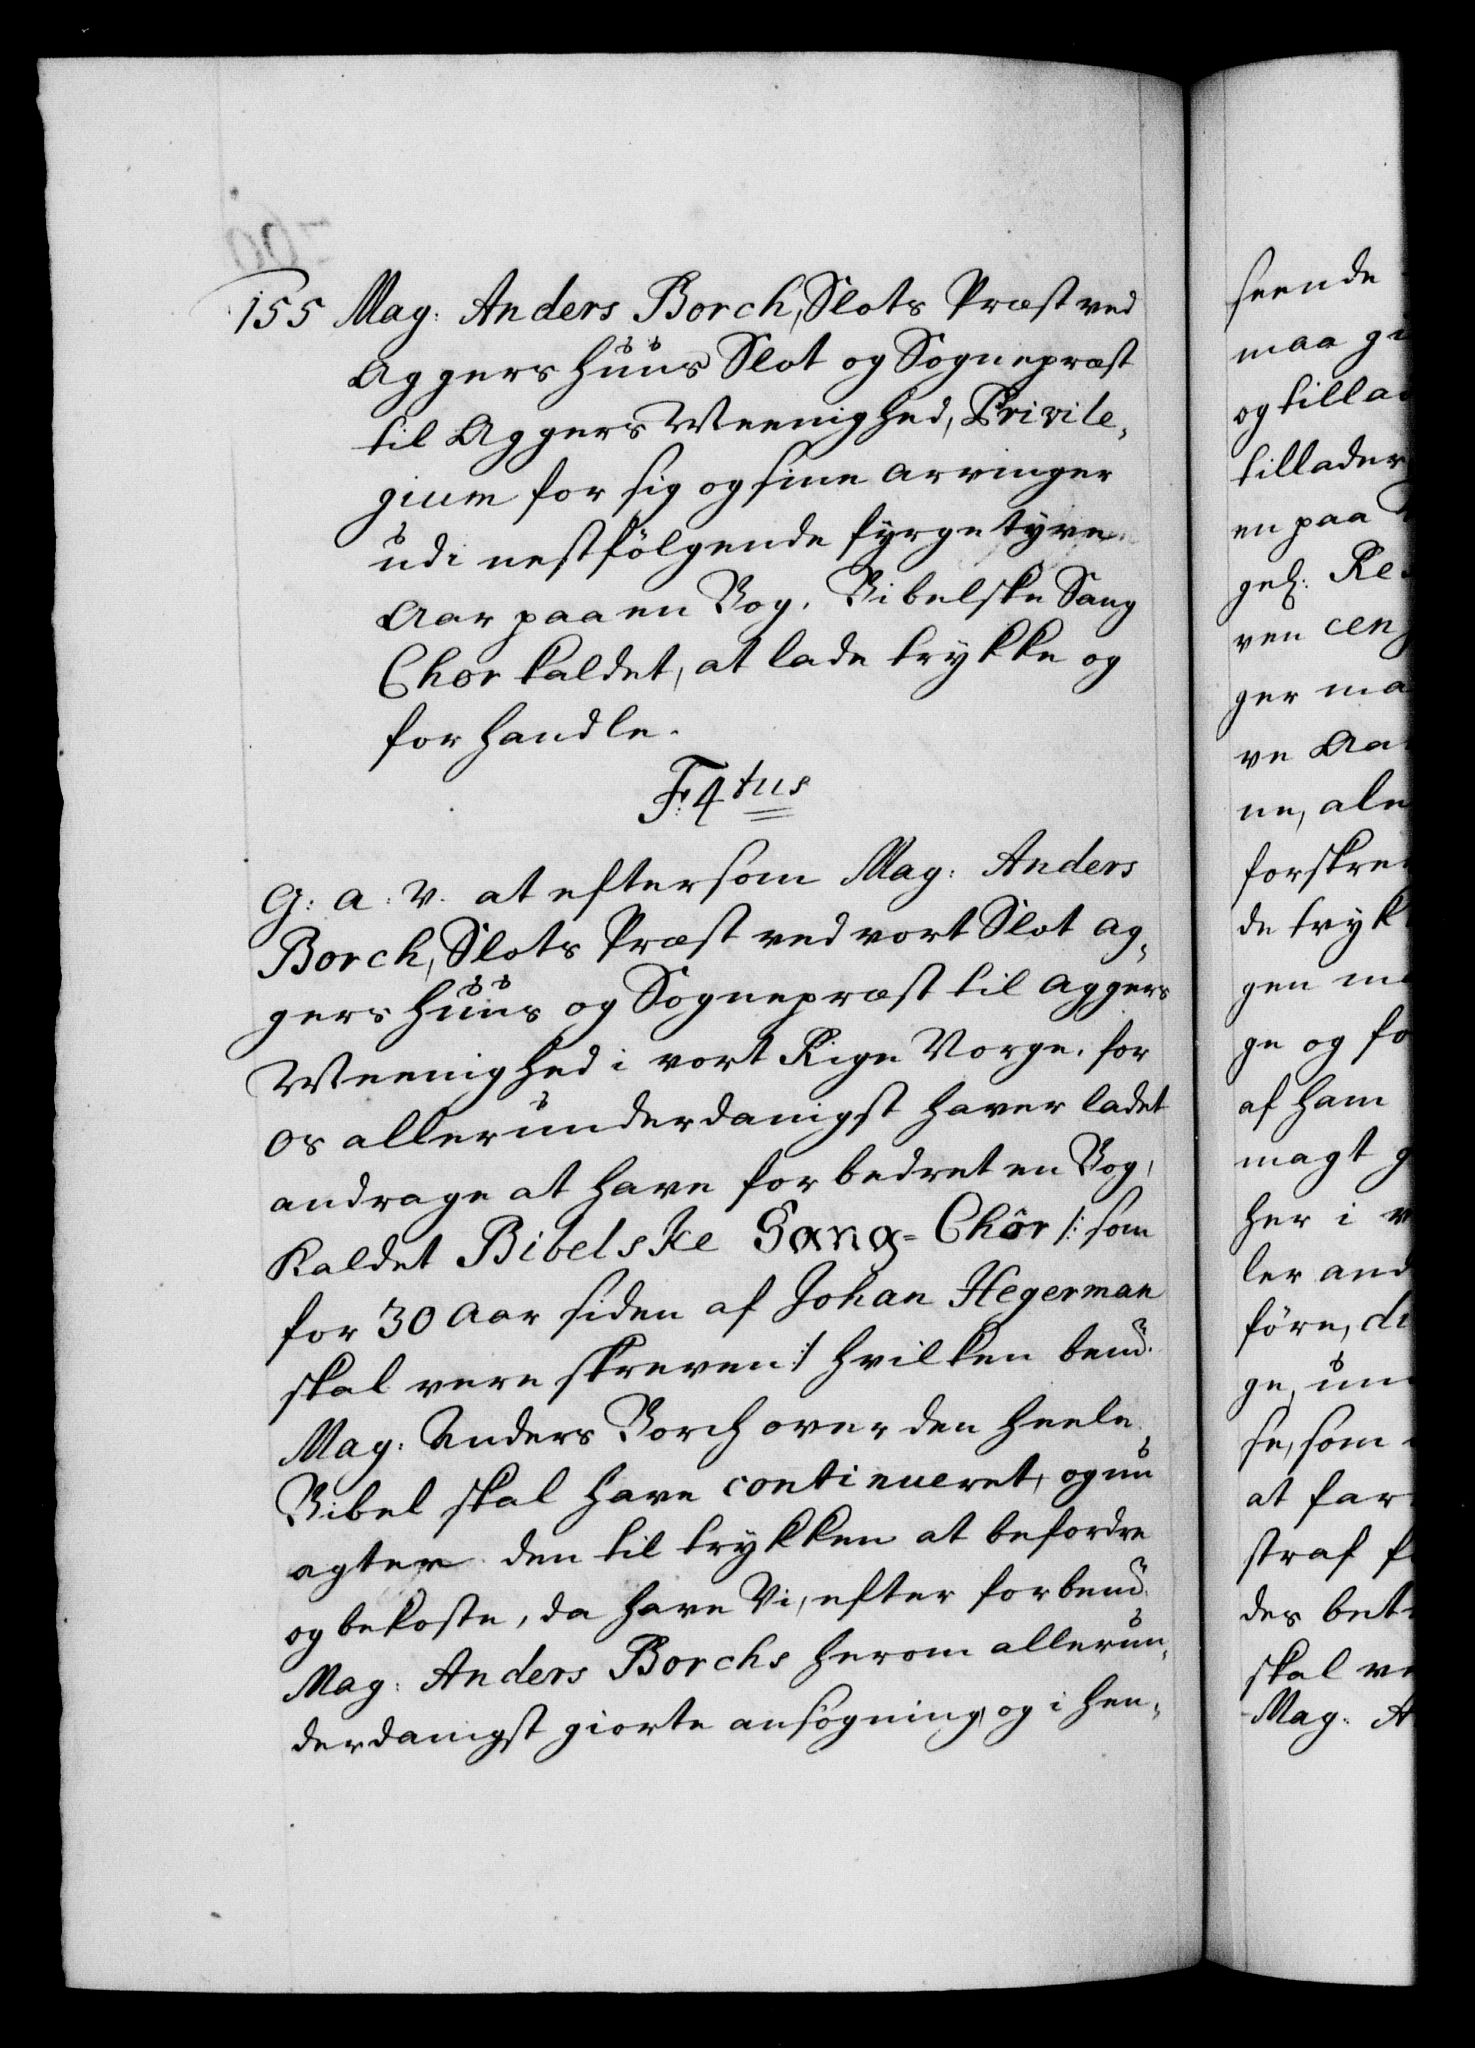 155 Mag: Anders Borch, Slots Præst ved
Aggershuus Slot og Sognepræst
til Aggers Meenighed, Privile,
gium for sig og sine arvinger
udi nestfölgende fyrgetyve
Aar paa en Bog, Bibelske Sang
Chor kaldet, at lade trykke og
forhandle.
F: 4tus
G: a: v. at eftersom Mag: Anders
Borch, Slots Præst ved vort Slot ag,
gershuus og Sognepræst til aggers
Meenighed i vort Rige Norge, for
os allerunderdanigst haver ladet
andrage at have forbedret en Bog,
kaldet Bibelske Sang=Chor /: som
for 30 Aar siden af Johan Hegerman
skal vere skreven :/ hvilken bemd.
Mag: Anders Borch over den heele
Bibel skal have continueret, og nu
agter den til trykken at befordre
og bekoste, da have Vi, efter forbemd.
Mag: Anders Borchs herom allerun,
derdanigst giorte ansögning, og i hen,
seende
maa
og
tillader
en paa
gel: Re
ven
ger
ve Aa
ne, ale
forskre
de tryk
gen
ge og fo
af ham
magt
her i
ler and
före,
ge,
se, som
at
straf
des
skal
Mag: A